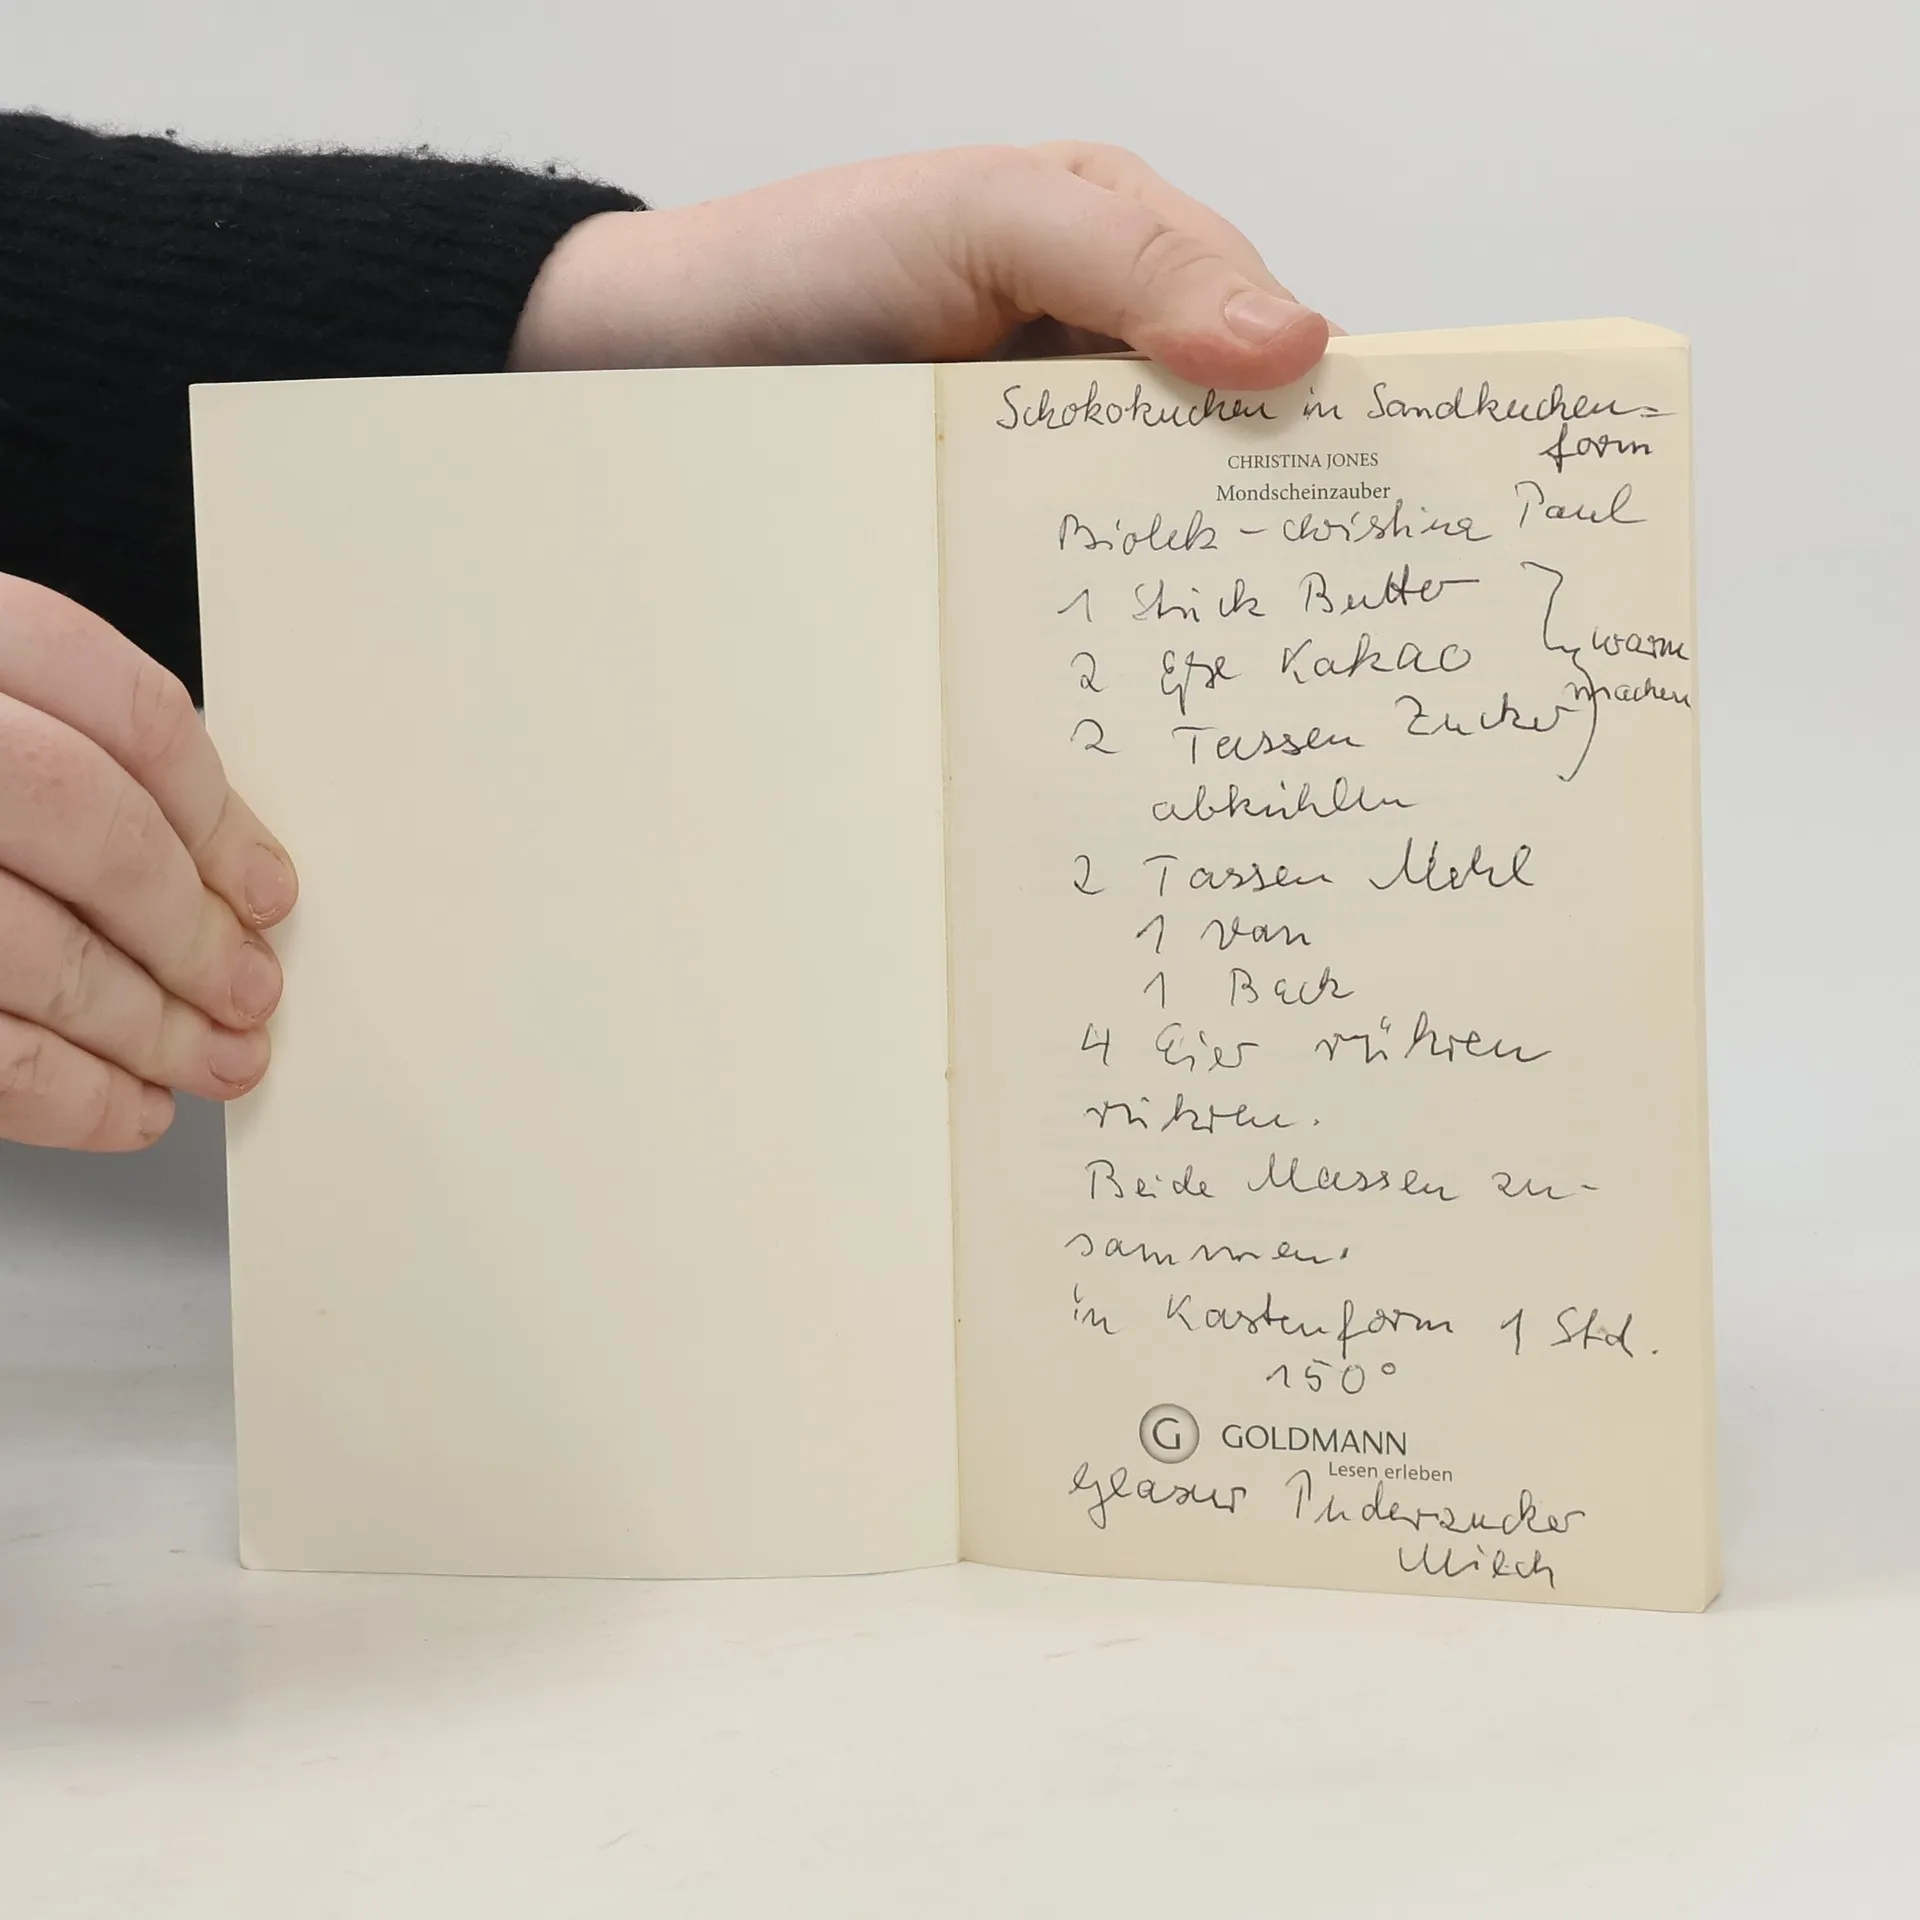 Schokokuchen in Sandkuchen=
form
CHRISTINA JONES
Mondscheinzauber
Biolek – Christina Paul
1 Stück Butter
2 Eßl Kakao
warm
machen
2 Tassen Zucker
abkühlen
2 Tassen Mehl
1 Van
1 Back
4 Eier rühren
rühren.
Beide Massen zu-
sammen.
in Kastenform 1 Std.
150°
G GOLDMANN
Lesen erleben
Glasur Puderzucker
Milch